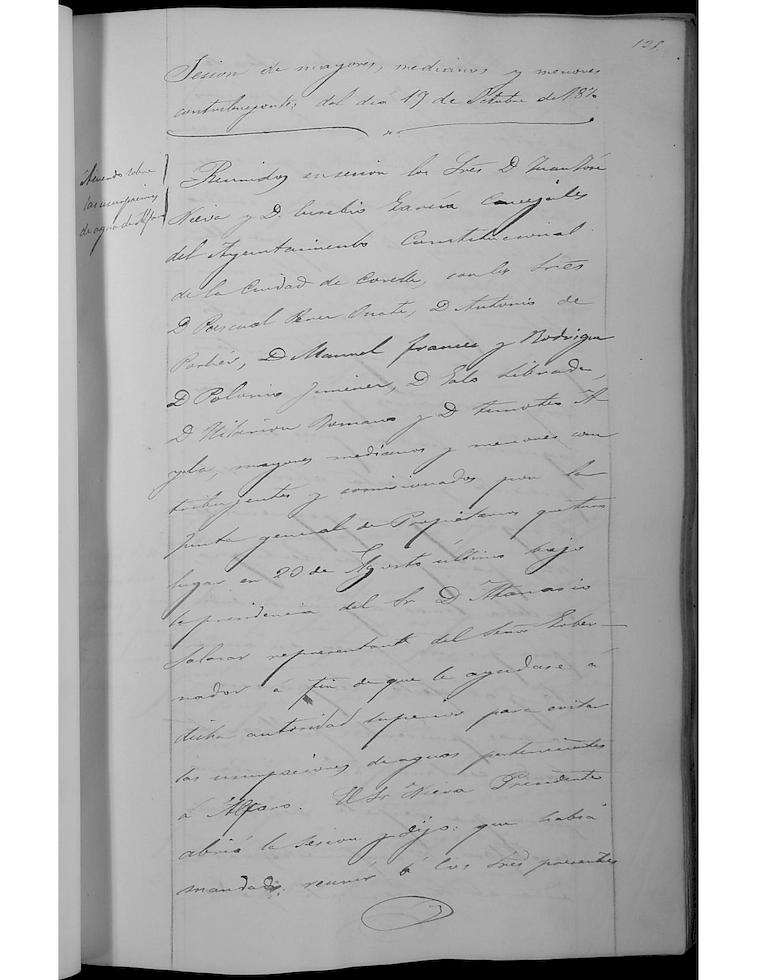 131
Sesion de mayores, medianos y menores
contribuyentes del dia 19 de Octubre de 187
Acuerdo sobre
las usurpaciones
de agua de Alfaro
Reunidos en sesion los Sres D. Juan José
Nieva y D. Eusebio Garcia Concejales
del Ayuntamiento Constitucional
de la Ciudad de Corella, con los Sres
D Pascual Perez Oñate, D Antonio de
Portier, D Manuel Frances y Rodriguez
D Polonio Jimenez, D Galo Librada,
D Hilarion Romano y D Timoteo A
yala, mayores medianos y menores con
tribuyentes y comisionados por la
Junta general de Propietarios que tuvo
lugar en 23 de Agosto último bajo
la presidencia del Sr D Atanasio
Salazar representante del Señor Gober-
nador á fin de que le ayudase á
dicha autoridad superior para evitar
las usurpaciones de aguas pertenecientes
á Alfaro. El Sr Nieva Presidente
abrió la sesion y dijo: que habia
mandado reunir á los Sres presentes